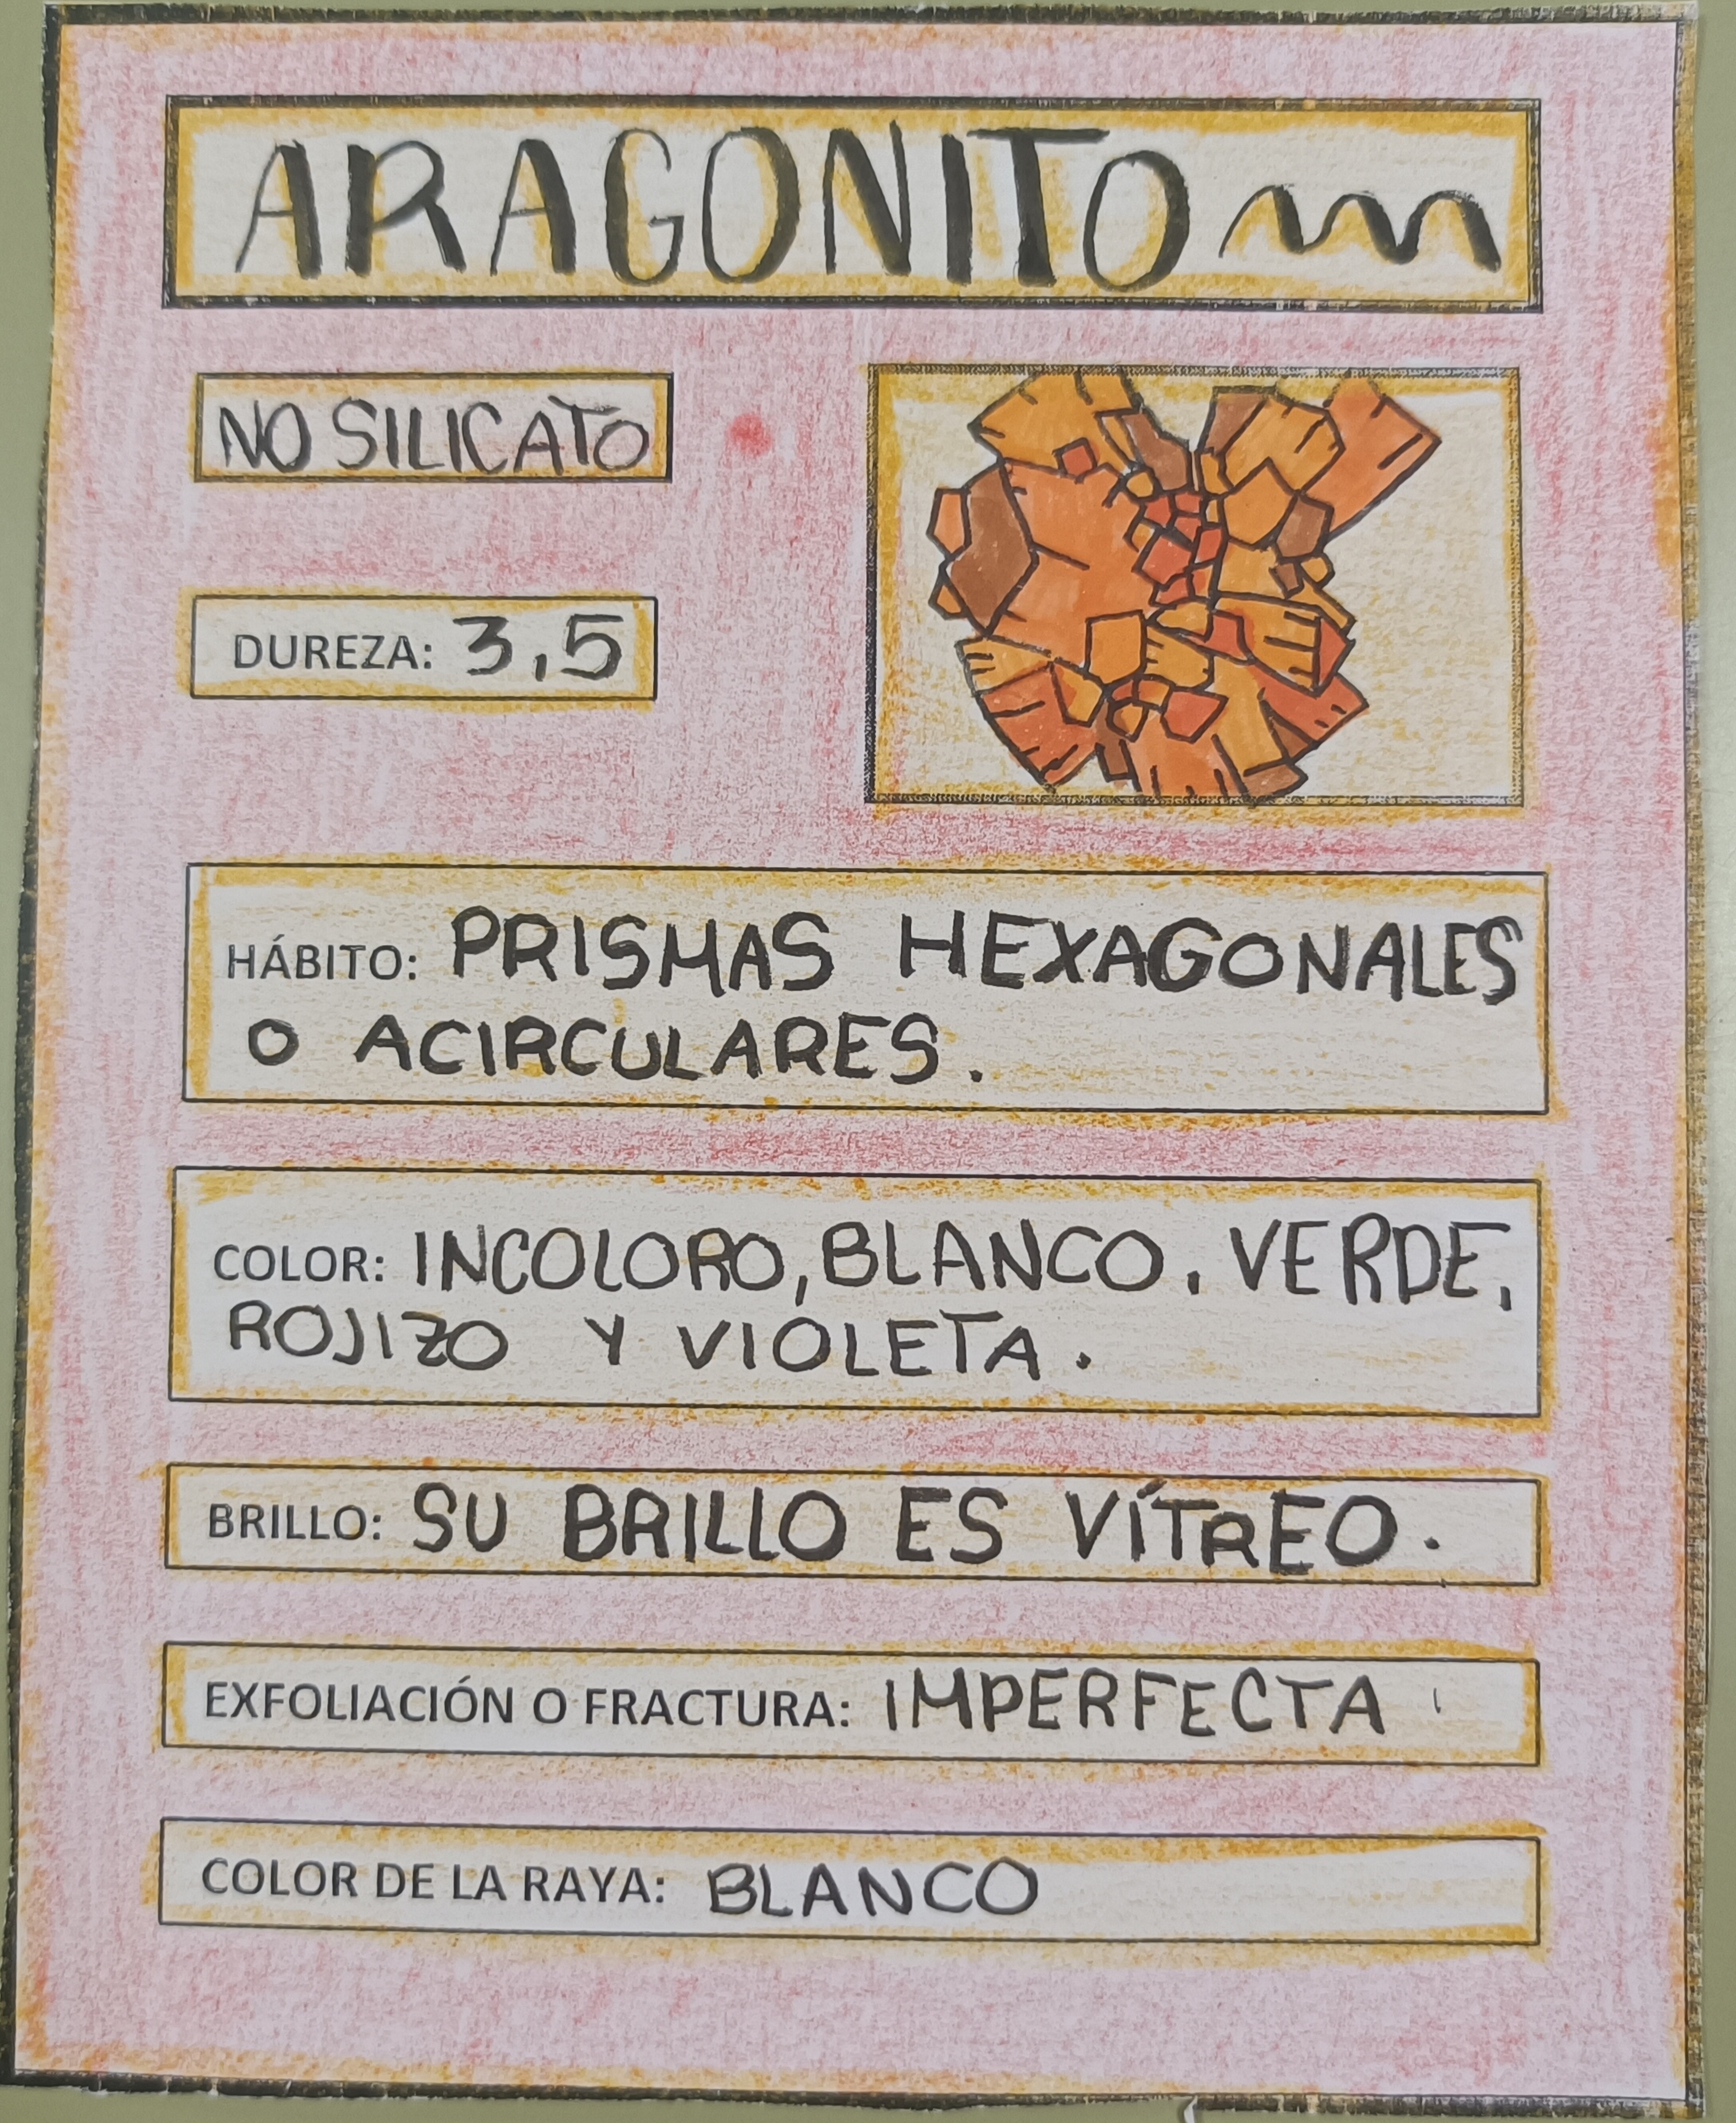 ARAGONITO
NO SILICATO
DUREZA: 3,5
HÁBITO: PRISMAS HEXAGONALES
O ACIRCULARES.
COLOR: INCOLORO, BLANCO, VERDE,
ROJIZO Y VIOLETA.
BRILLO: SU BRILLO ES VÍTREO.
EXFOLIACIÓN O FRACTURA: IMPERFECTA
COLOR DE LA RAYA: BLANCO